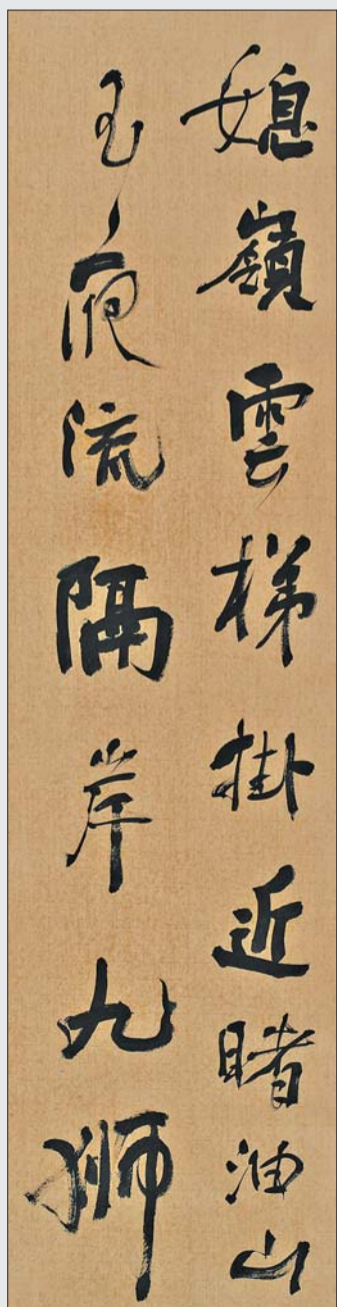 媳嶺雲梯掛近睹油山
玉夜流隔岸九狮